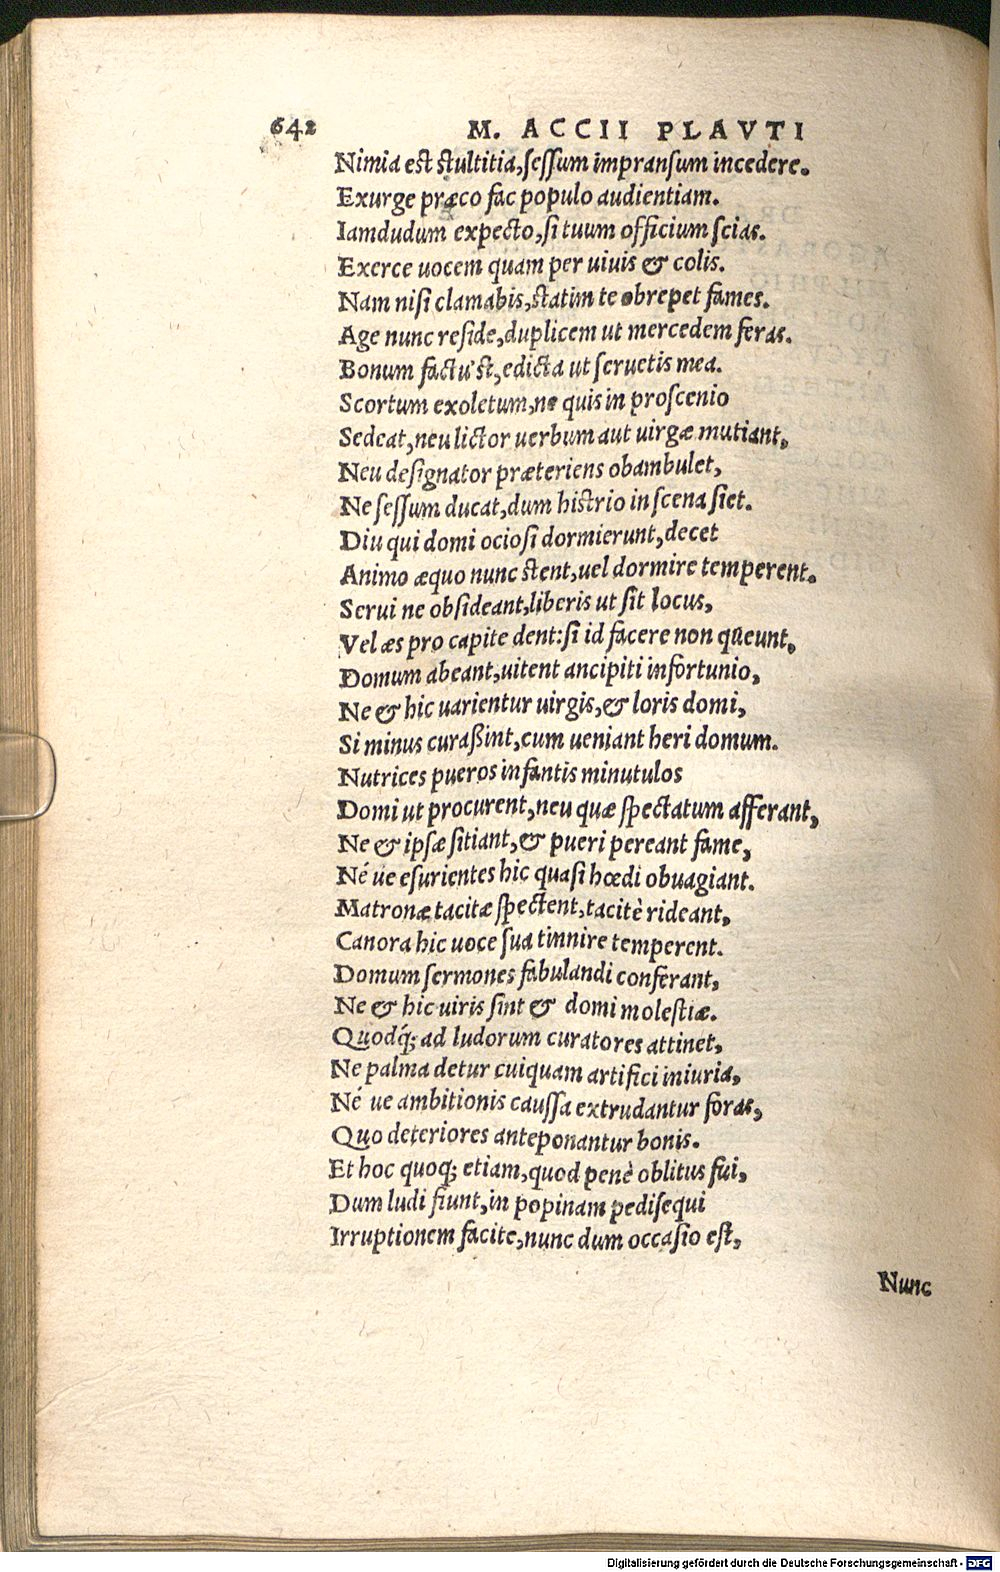 642 M. ACCII PLAVTI
Nimia est stultitia,sessum impransum incedere.
Exurge præco fac populo audientiam.
Iamdudum expecto,si tuum officium scias.
Exerce uocem quam per uiuis & colis.
Nam nisi clamabis,statim te obrepet fames.
Age nunc reside,duplicem ut mercedem feras.
Bonum factu'st,edicta ut seruetis mea.
Scortum exoletum,ne quis in proscenio
Sedeat,neu lictor uerbum aut uirgæ mutiant,
Neu designator præteriens obambulet,
Ne sessum ducat,dum histrio in scena siet.
Diu qui domi ociosi dormierunt,decet
Animo æquo nunc stent,uel dormire temperent.
Serui ne obsideant,liberis ut sit locus,
Vel æs pro capite dent:si id facere non queunt,
Domum abeant,uitent ancipiti infortunio,
Ne & hic uarientur uirgis,& loris domi,
Si minus curaßint,cum ueniant heri domum.
Nutrices pueros infantis minutulos
Domi ut procurent,neu quæ spectatum afferant,
Ne & ipsæ sitiant,& pueri pereant fame,
Né ue esurientes hic quasi hœdi obuagiant.
Matronæ tacitæ spectent,tacitè rideant,
Canora hic uoce sua tinnire temperent.
Domum sermones fabulandi conferant,
Ne & hic uiris sint & domi molestiæ.
Quodq́; ad ludorum curatores attinet,
Ne palma detur cuiquam artifici iniuria,
Né ue ambitionis caussa extrudantur foras,
Quo deteriores anteponantur bonis.
Et hoc quoq; etiam,quod penè oblitus fui,
Dum ludi fiunt,in popinam pedisequi
Irruptionem facite,nunc dum occasio est,
Nunc
Digitalisierung gefördert durch die Deutsche Forschungsgemeinschaft - DFG